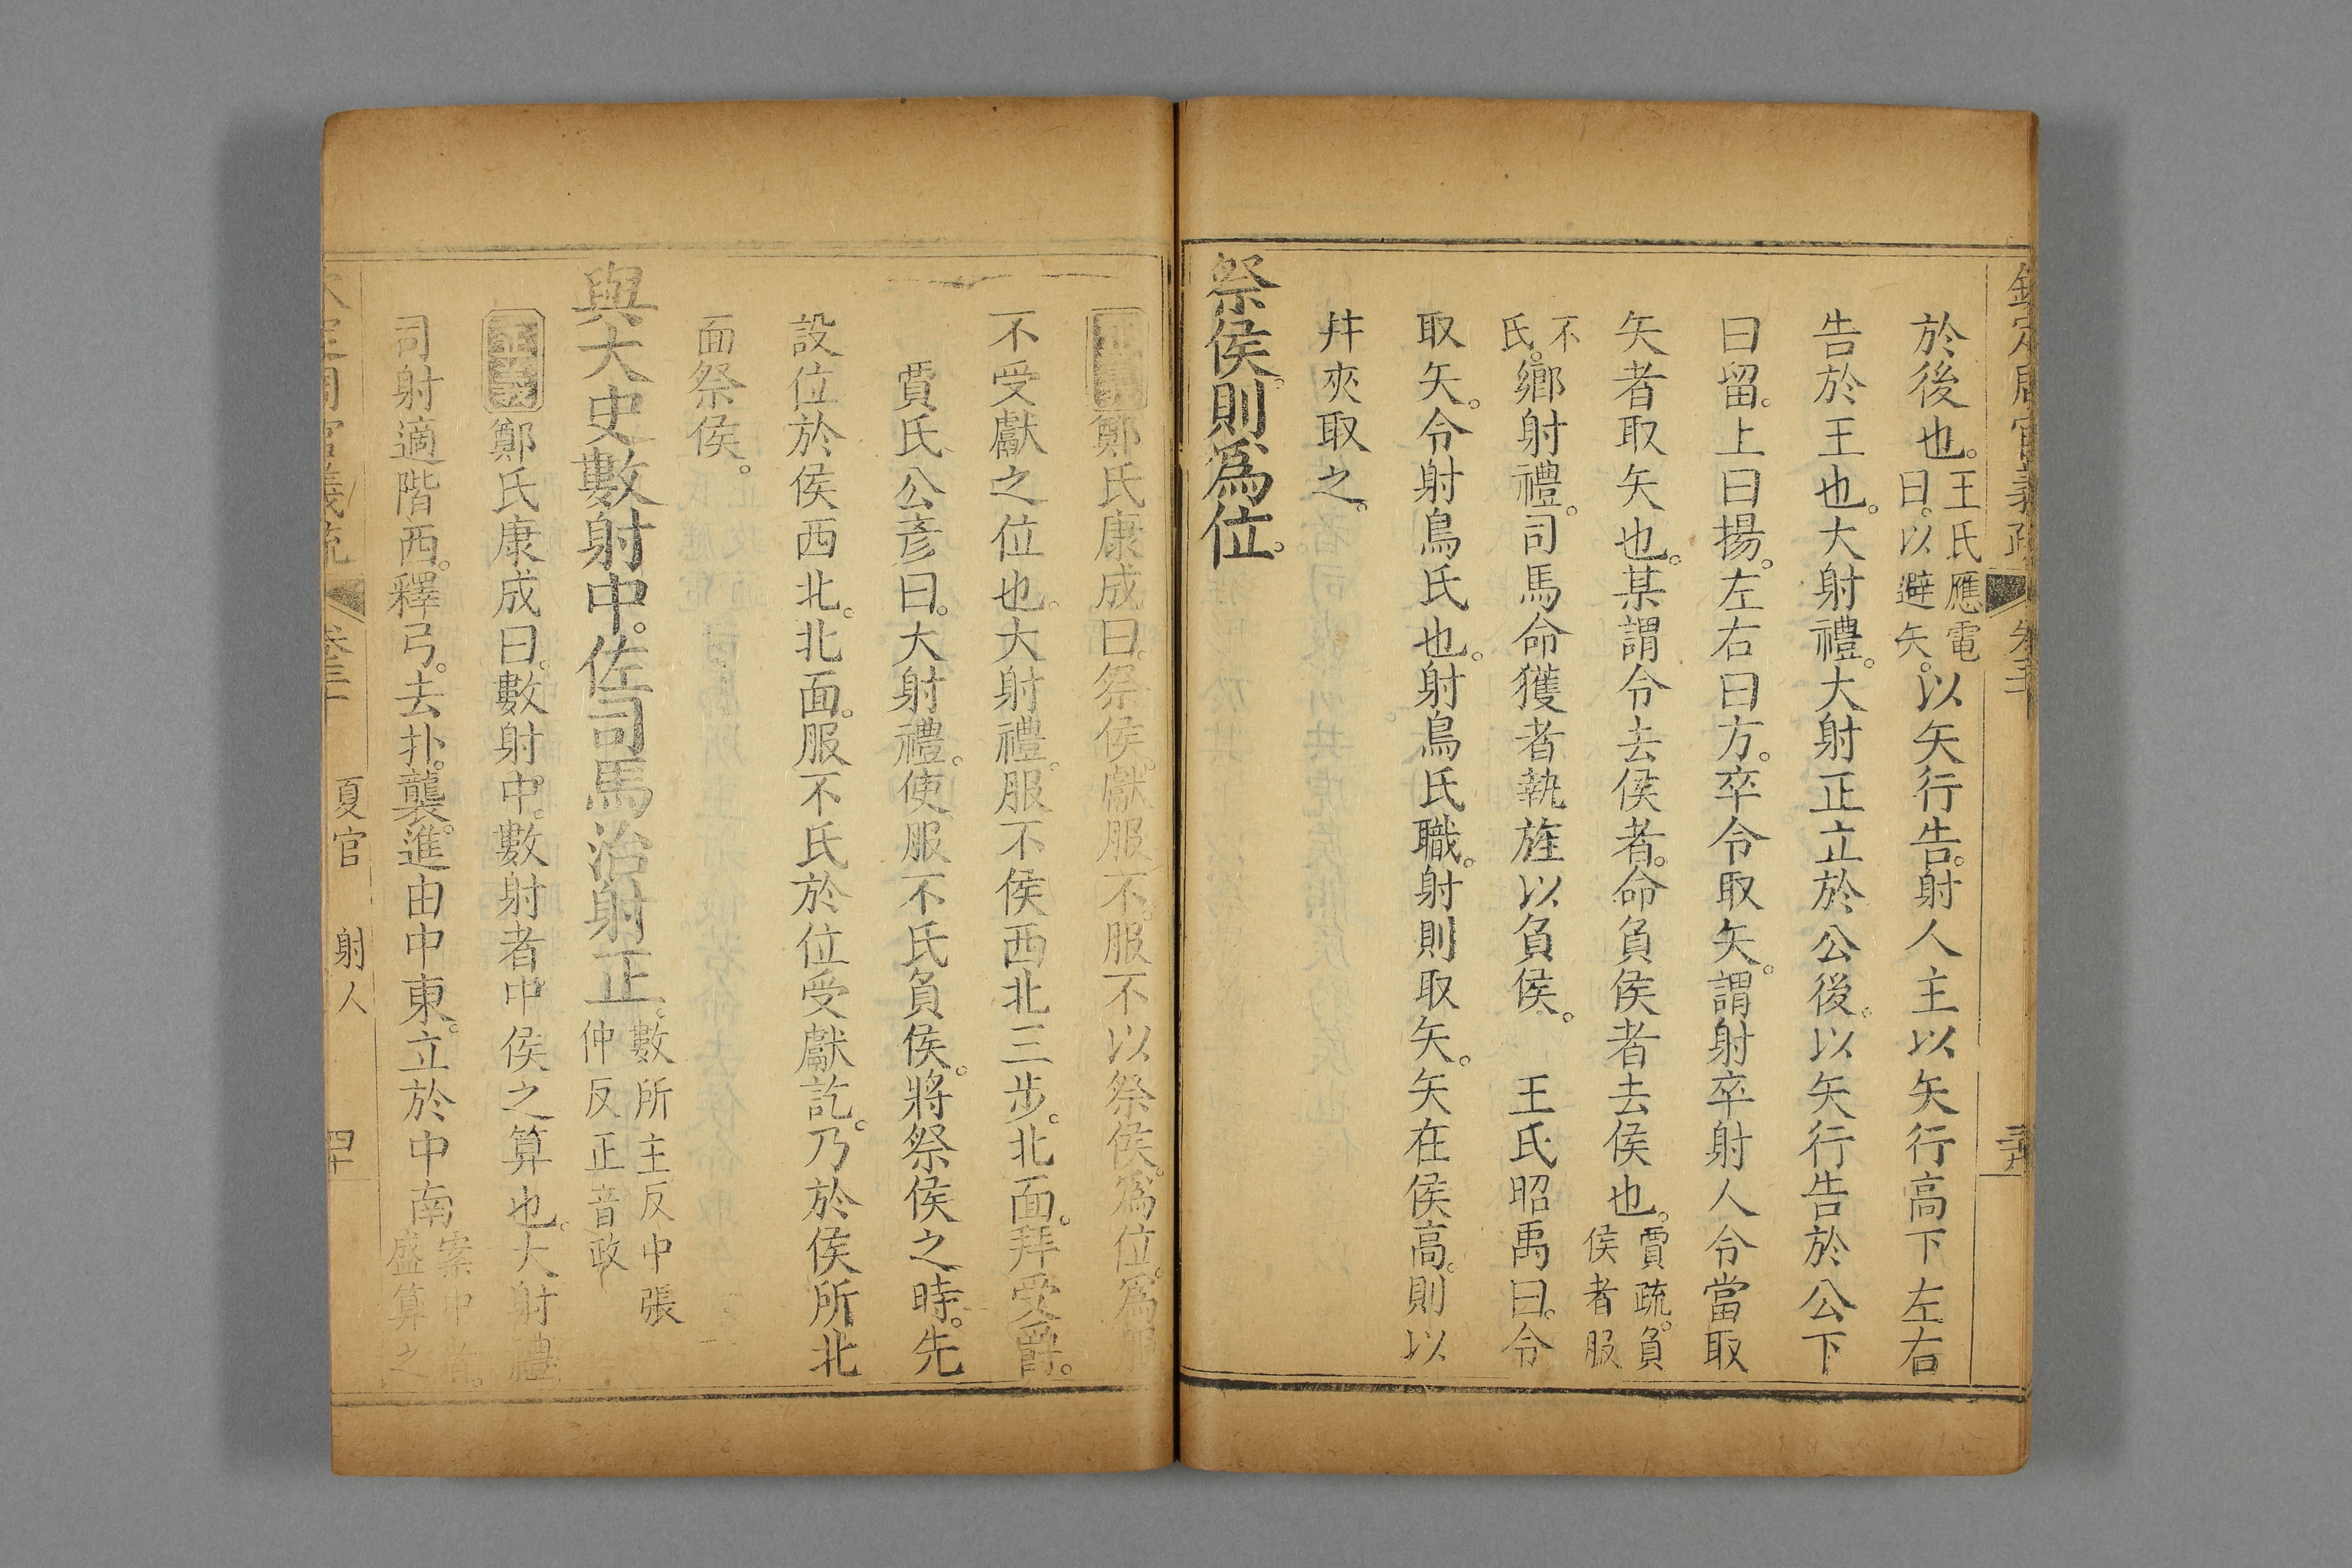 於後也。王氏應電曰。以避矢。以矢行告。射人主以矢行高下左右
告於王也。大射禮。大射正立於公後。以矢行告於公下
曰留。上曰揚。左右曰方。卒令取矢。謂射卒射人令當取
矢者取矢也。某謂令去侯者。命負侯者去侯也。賈疏。負侯者服
不氏。鄉射禮。司馬命獲者執旌以負侯。 王氏昭禹曰。令
取矢。令射鳥氏也。射鳥氏職。射則取矢。矢在侯高。則以
幷夾取之。
祭侯則爲位。
正義鄭氏康成曰。祭侯。獻服不。服不以祭侯。爲位。爲服
不受獻之位也。大射禮。服不侯西北三步。北面。拜受爵。
賈氏公彥曰。大射禮。使服不氏負侯。將祭侯之時。先
設位於侯西北。北面。服不氏於位受獻訖。乃於侯所北
面祭侯。
與大史數射中。佐司馬治射正。數所主反中張仲反正音政
正義鄭氏康成曰。數射中。數射者中侯之算也。大射禮
司射適階西。釋弓。去扑。襲。進由中東。立於中南案中者。盛算之
夏官 射人 四十